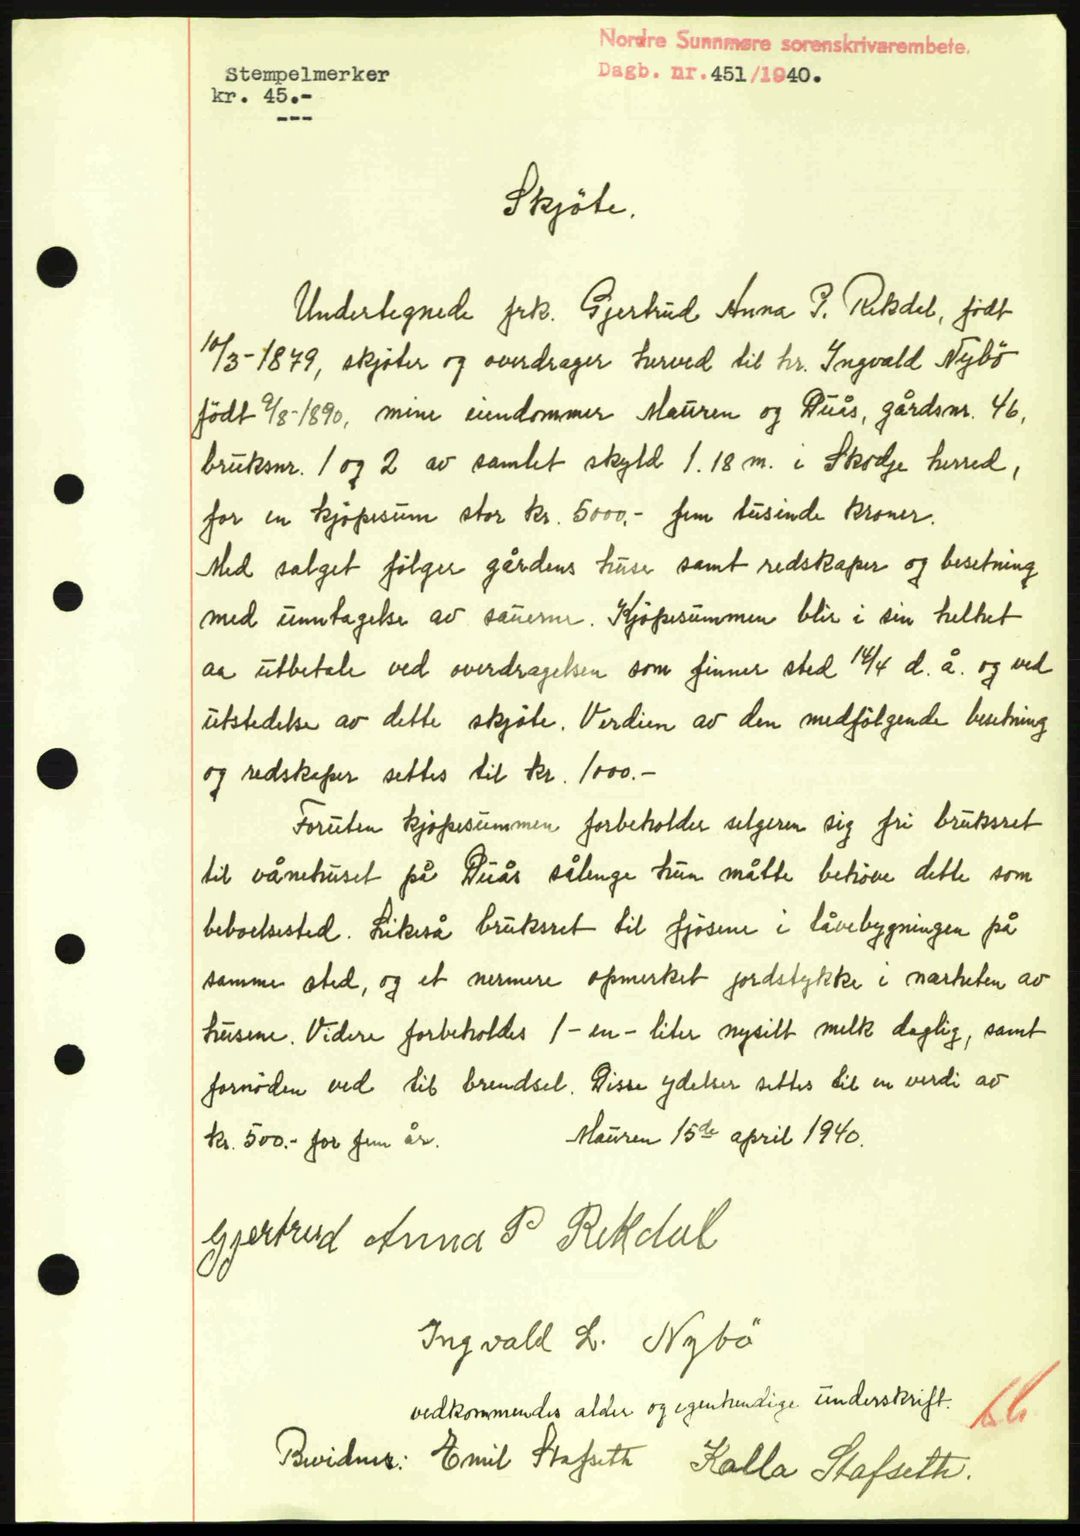 Nordre Sunnmøre sorenskrivarembete.
Stempelmerker
Dagb. nr. 451/1940.
kr. 45.-
---
Skjöte.
Undertegnede frk. Gjertrud Anna P. Rekdal, født
10/3-1879, skjøter og overdrager herved til hr. Ingvald Nybö
født 9/8-1890, mine eiendommer Mauren og Duås, gårdsnr. 46,
bruksnr. 1 og 2 av samlet skyld 1.18 m. i Skodje herred,
for en kjøpesum stor kr. 5000,- fem tusinde kroner.
Med salget følger gårdens huse samt redskaper og besetning
med unntagelse av sauerne. Kjöpesummen blir i sin helhet
aa utbetale ved overdragelsen som finner sted 14/4 d. å. og ved
utstedelse av dette skjöte. Verdien av den medfölgende besetning
og redskaper settes til kr. 1000.-
Foruten kjøpesummen forbeholder selgeren sig fri bruksret
til vånehuset på Duås sålenge hun måtte behöve dette som
beboelsested. Likeså bruksret til fjösene i låvebygningen på
samme sted, og et nermere opmerket jordstykke i nærheten av
husene. Videre forbeholdes 1 - en - liter nysilt melk daglig, samt
fornöden ved til brendsel. Disse ydelser settes til en verdi av
kr. 500.- for fem år. Mauren 15de april 1940.
Gjertrud Anna P Rekdal
Ingvald L. Nybö
vedkommendes alder og egenhendige underskrift.
Bevidner: Emil Stafseth Kalla Stafseth.